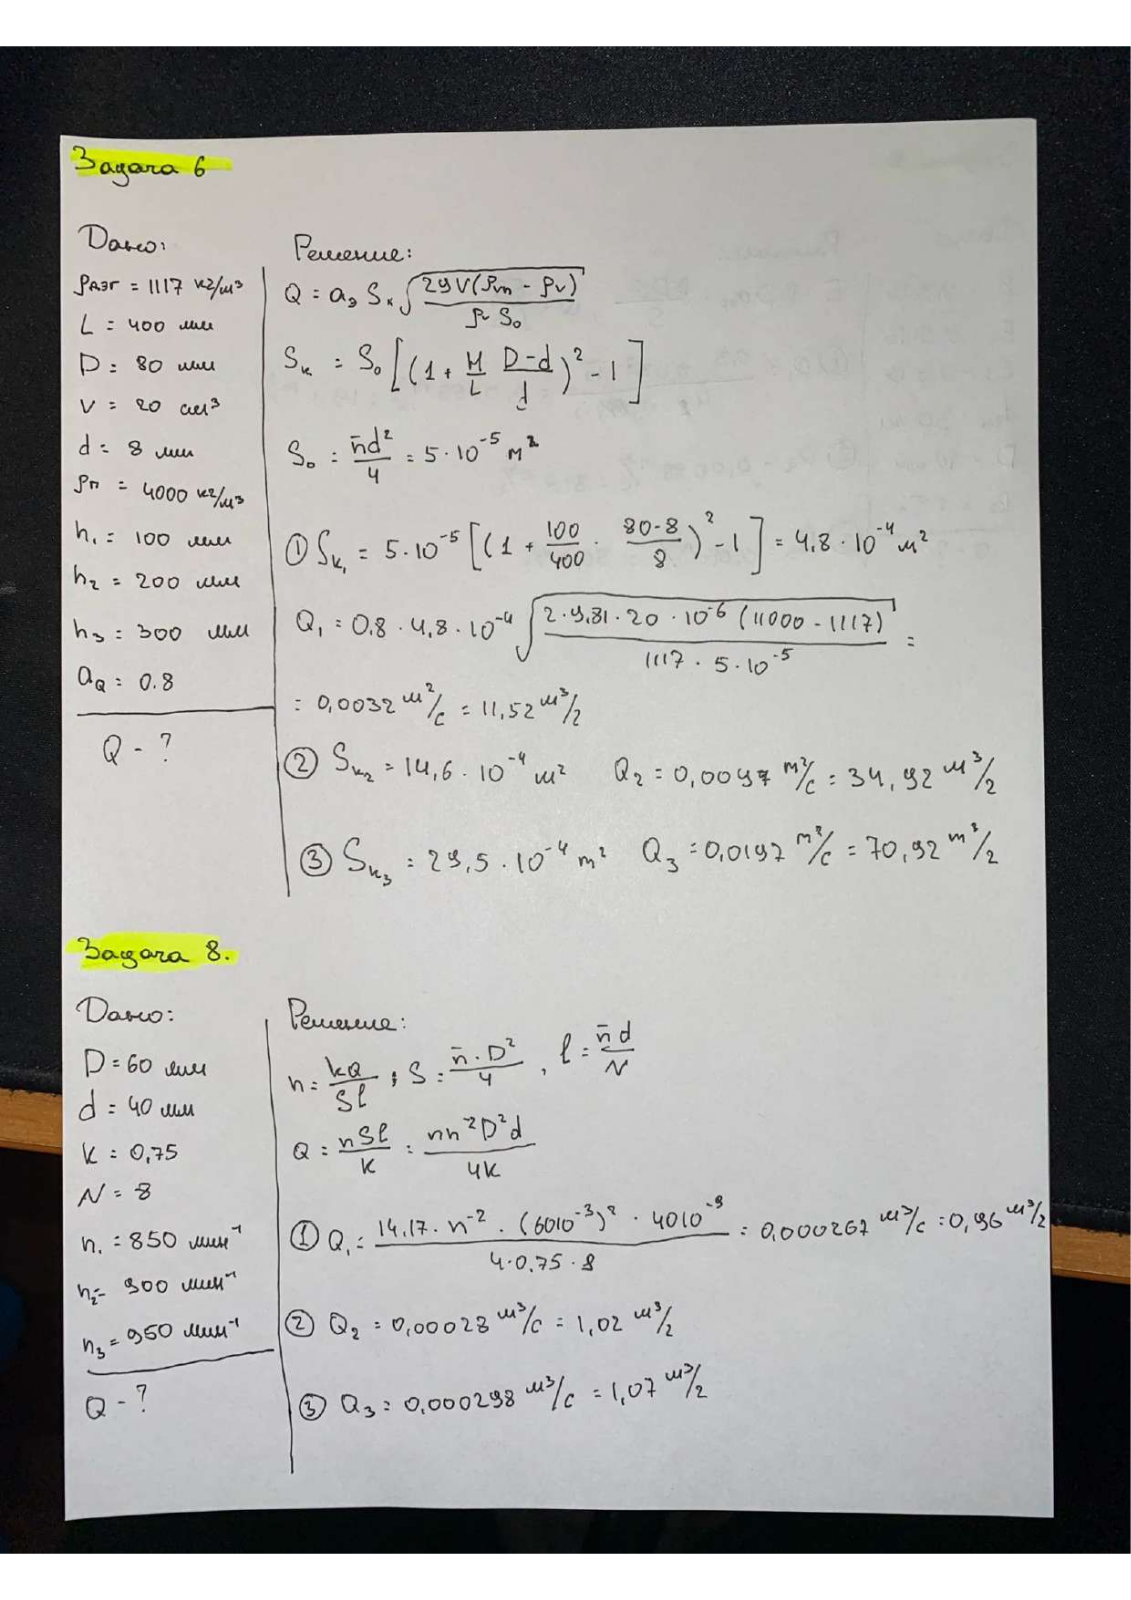 Задача 6
Дано:
ρАЗГ = 1117 кг/м³
L = 400 мм
D = 80 мм
V = 20 см³
d = 8 мм
ρп = 4000 кг/м³
h₁ = 100 мм
h₂ = 200 мм
h₃ = 300 мм
aQ = 0.8
Q - ?
Решение:
Q = aэ Sк √(2gV(ρm - ρv) / ρv S₀)
Sк = S₀ [(1 + H/L · D-d/d)² - 1]
S₀ = πd²/4 = 5·10⁻⁵ м²
① Sк₁ = 5·10⁻⁵ [(1 + 100/400 · 80-8/8)² - 1] = 4,8·10⁻⁴ м²
Q₁ = 0.8 · 4,8·10⁻⁴ √(2·9,81·20·10⁻⁶ (11000 - 1117) / 1117·5·10⁻⁵) =
= 0,0032 м²/с = 11,52 м³/г
② Sк₂ = 14,6·10⁻⁴ м² Q₂ = 0,0097 м³/с = 34,92 м³/г
③ Sк₃ = 29,5·10⁻⁴ м² Q₃ = 0,0197 м³/с = 70,92 м³/г
Задача 8.
Дано:
D = 60 мм
d = 40 мм
K = 0,75
N = 8
n₁ = 850 мин⁻¹
n₂ = 900 мин⁻¹
n₃ = 950 мин⁻¹
Q - ?
Решение:
n = kQ/Sl ; S = π·D²/4 , l = πd/N
Q = nSl/K = nπ⁻²D²d/4K
① Q₁ = 14,17·π⁻²·(6010⁻³)²·4010⁻³ / 4·0.75·8 = 0,000267 м³/с = 0,96 м³/г
② Q₂ = 0,00028 м³/с = 1,02 м³/г
③ Q₃ = 0,000298 м³/с = 1,07 м³/г